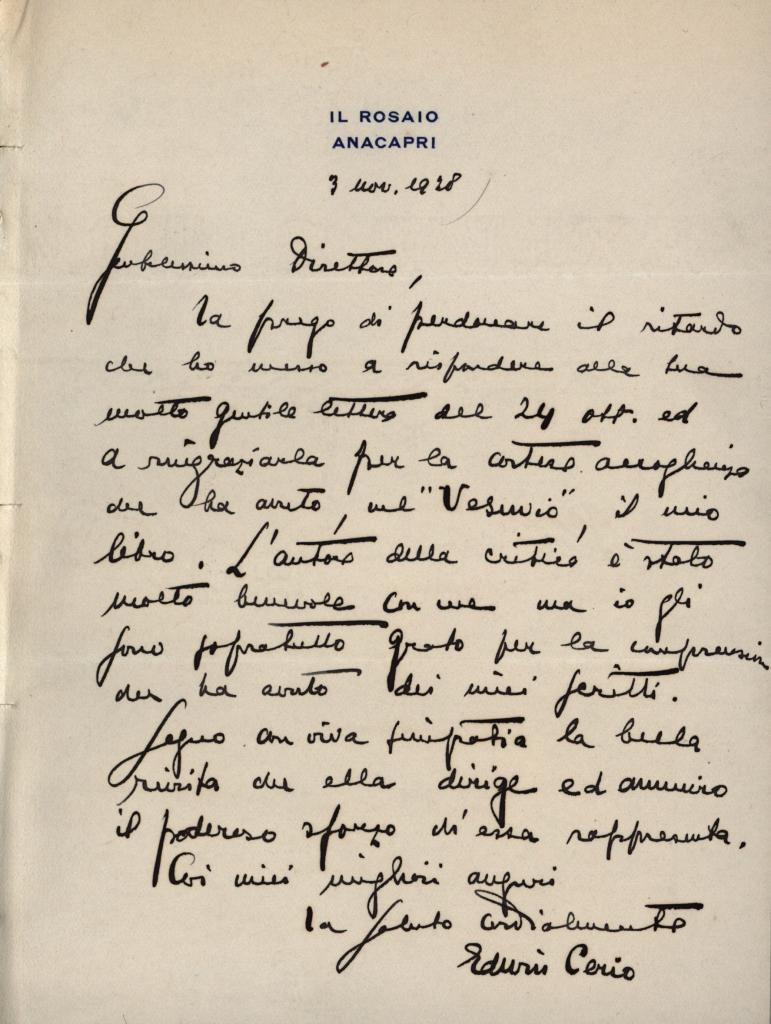 IL ROSAIO
ANACAPRI
3 nov. 1928
Gentilissimo Direttore,
La prego di perdonare il ritardo
che ho messo a rispondere alla sua
molto gentile lettera del 24 ott. ed
a ringraziarla per la cortese accoglienza
che ha avuto, nel "Vesuvio", il mio
libro. L'autore della critica è stato
molto benevole con me ma io gli
sono sopratutto grato per la comprensione
che ha avuto dei miei scritti.
Seguo con viva simpatia la bella
rivista che ella dirige ed ammiro
il poderoso sforzo ch'essa rappresenta.
Coi miei migliori auguri
la saluto cordialmente
Edwin Cerio